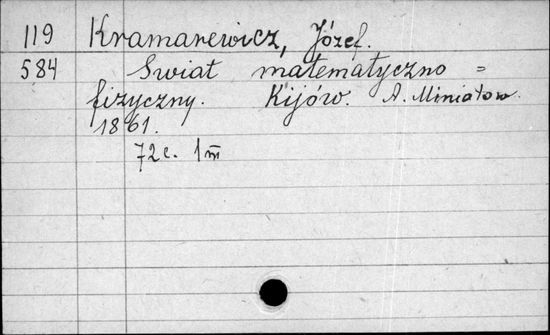 119 Kramarewicz, Józef.
584 Swiat matematyczno =
fizyczny. Kijów. A. Miniatow.
1861.
72 c. 1 m